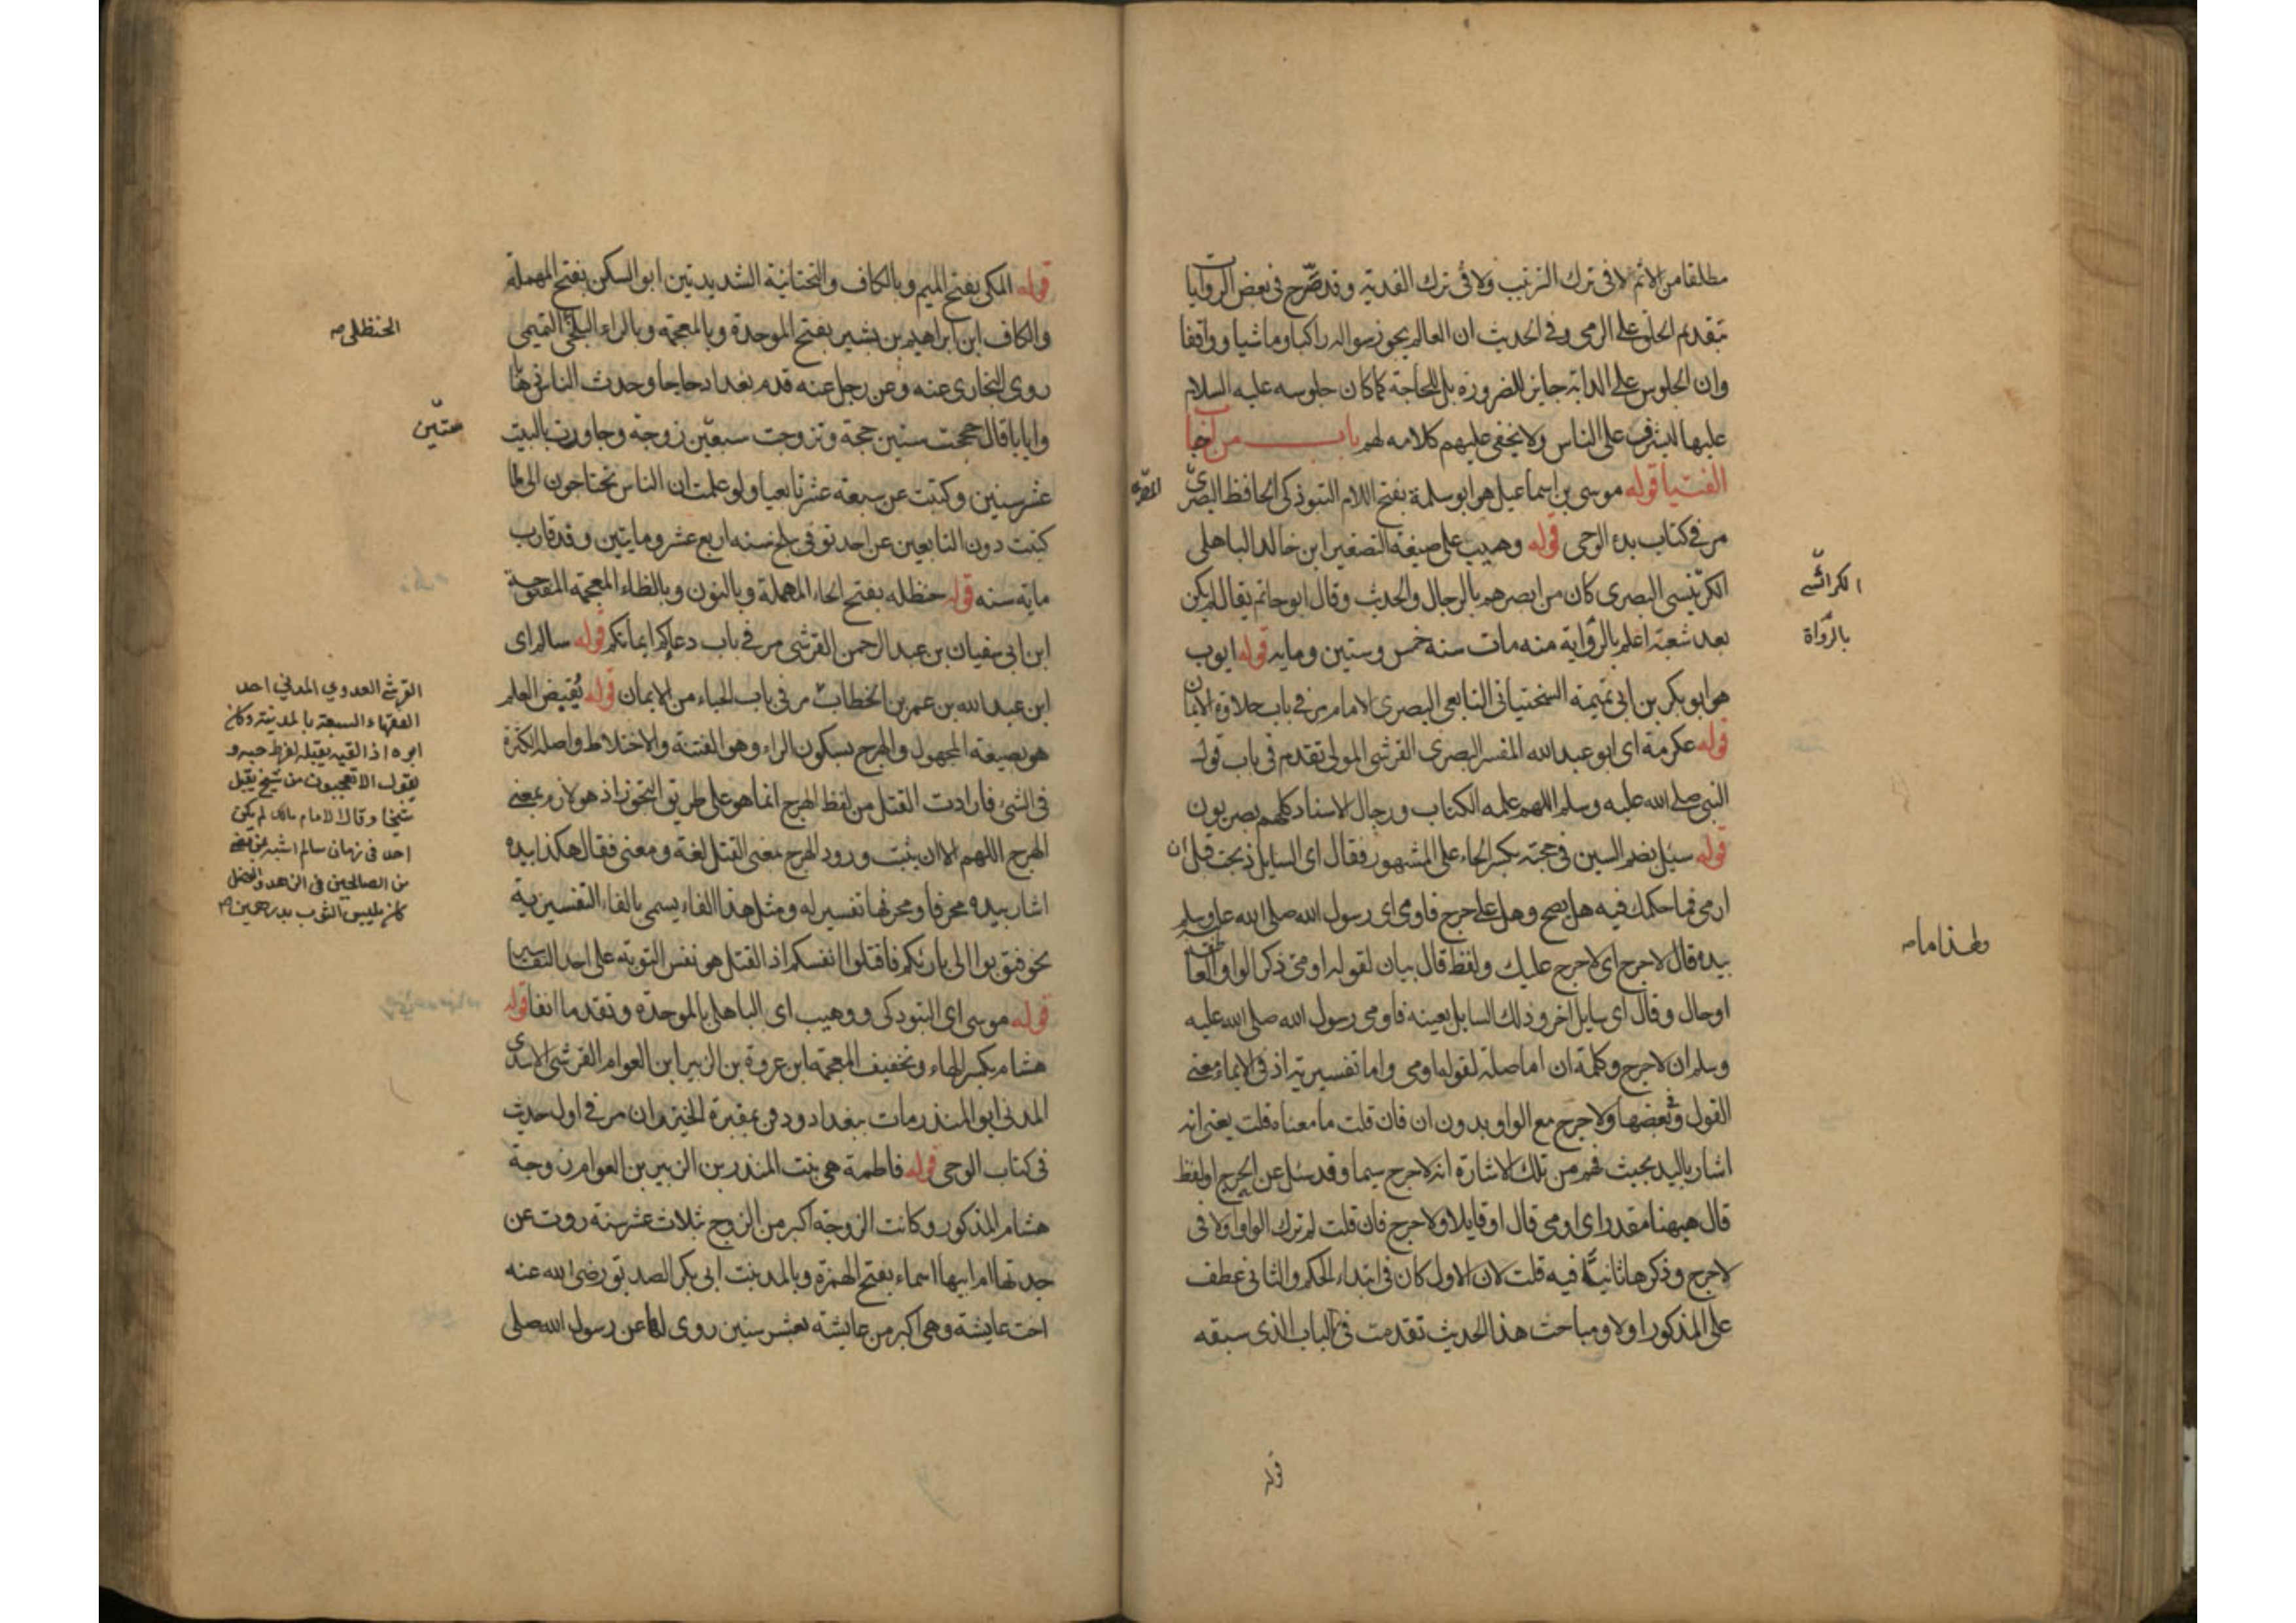 مطلقا من الاثم لا فى ترك الترتيب ولا فى ترك الفدية وقد صرح فى بعض الروايات
بتقديم الحلق على الرمى وفى الحديث ان العالم يجوز سواله راكبا وماشيا وواقفا
وان الجلوس على الدابة جايز للضرورة بل للحاجة كما كان جلوسه عليه السلام
عليها ليشرف على الناس ولا يخفى عليهم كلامه لهم باب من اجاب
الفتيا قوله موسى بن اسماعيل هو ابو سلمة بفتح اللام التبوذكى الحافظ البصرى
مر فى كتاب بدء الوحى قوله وهيب على صيغة التصغير ابن خالد الباهلى
الكرابيسى البصرى كان من ابصرهم بالرجال والحديث وقال ابو حاتم يقال لم يكن
بعد شعبة اعلم بالرواية منه مات سنه خمس وستين ومايه قوله ايوب
هو ابو بكر بن ابى تميمة السختيانى التابعى البصرى الامام مر فى باب حلاوة الايمان
قوله عكرمة اى ابو عبد الله المفسر البصرى القرشى المولى تقدم فى باب قول
النبى صلى الله عليه وسلم اللهم علمه الكتاب ورجال الاسناد كلهم بصريون
قوله سئل بضم السين فى حجته بكسر الحاء على المشهور فقال اى السايل ذبحت قبل ان
ارمى فما حكمك فيه هل يصح وهل على حرج فاومى اى رسول الله صلى الله عليه وسلم
بيده قال لا حرج اى لا حرج عليك ولفظ قال بيان لقوله اومى ذكر الواو العاطفة
او حال وقال اى سايل اخر وذلك السايل بعينه فاومى رسول الله صلى الله عليه
وسلم ان لا حرج وكلمة ان اما صلة لقوله اومى واما تفسيرية اذ فى الايماء معنى
القول وفى بعضها ولا حرج مع الواو بدون ان فان قلت ما معناه قلت يعنى انه
اشار باليد بحيث فهم من تلك الاشارة انه لا حرج سيما وقد سئل عن الحرج او لفظ
قال ههنا مقدر اى اومى قال او قايلا ولا حرج فان قلت لم ترك الواو اولا فى
لا حرج وذكرها ثانيا فيه قلت لان الاول كان فى ابتداء الحكم والثانى عطف
على المذكور اولا ومباحث هذا الحديث تقدمت فى الباب الذى سبقه
قوله
الكرابيسى
بالرواة
قوله المكى بفتح الميم وبالكاف والتحتانية الشديدتين ابو السكن بفتح المهملة
والكاف ابن ابراهيم بن بشير بفتح الموحدة وبالمعجمة وبالراء البلخى التميمى
روى البخارى عنه وعن رجل عنه قدم بغداد حاجا وحدث الناس ذهابا
وايابا قال حججت ستين حجة وتزوجت سبعين زوجة وجاورت بالبيت
عشر سنين وكتبت عن سبعة عشر تابعيا ولو علمت ان الناس يحتاجون الى لما
كتبت دون التابعين عن احد توفى ببلخ سنه اربع عشر ومايتين وقد قارب
ماية سنه قوله حنظله بفتح الحاء المهملة وبالنون وبالظاء المعجمة المفتوحة
ابن ابى سفيان بن عبد الرحمن القرشى مر فى باب دعاكم ايمانكم قوله سالم اى
ابن عبد الله بن عمر بن الخطاب مر فى باب الحياء من الايمان قوله يقبض العلم
هو بصيغة المجهول والهرج بسكون الراء وهو الفتنة والاختلاط واصله الكثرة
فى الشئ فارادت القتل من لفظ الهرج انما هو على طريق التجوز اذ هو لازم معنى
الهرج اللهم الا ان يثبت ورود الهرج بمعنى القتل لغة ومعنى فقال هكذا بيده
اشار بيده محرفا ومحرفها تفسير له ومثل هذا الفاء يسمى بالفاء التفسيرية
نحو فتوبوا الى بارئكم فاقتلوا انفسكم اذ القتل هو نفس التوبة على احد التفاسير
قوله موسى اى التبوذكى ووهيب اى الباهلى بالموحدة وتقدما انفا قوله
هشام بكسر الهاء وتخفيف المعجمة ابن عروة بن الزبير ابن العوام القرشى الاسدى
المدنى ابو المنذر مات ببغداد ودفن بمقبرة الخيزران مر فى اول حديث
فى كتاب الوحى قوله فاطمة هى بنت المنذر بن الزبير بن العوام زوجة
هشام المذكور وكانت الزوجة اكبر من الزوج بثلاث عشر سنة روت عن
جدتها ام ابيها اسماء بفتح الهمزة وبالمد بنت ابى بكر الصديق رضى الله عنه
اخت عايشة وهى اكبر من عايشة بعشر سنين روى لها عن رسول الله صلى
الحنظلى
ستين
القرشى العدوي المدني احد
الفقهاء السبعة بالمدينة وكان
ابوه اذا لقيه يقبله لفرط حبه و
يقول الا تعجبون من شيخ يقبل
شيخا وقال الامام مالك لم يكن
احد فى زمان سالم اشبه بمن مضى
من الصالحين فى الزهد والفضل
كان يلبس الثوب بدرهمين